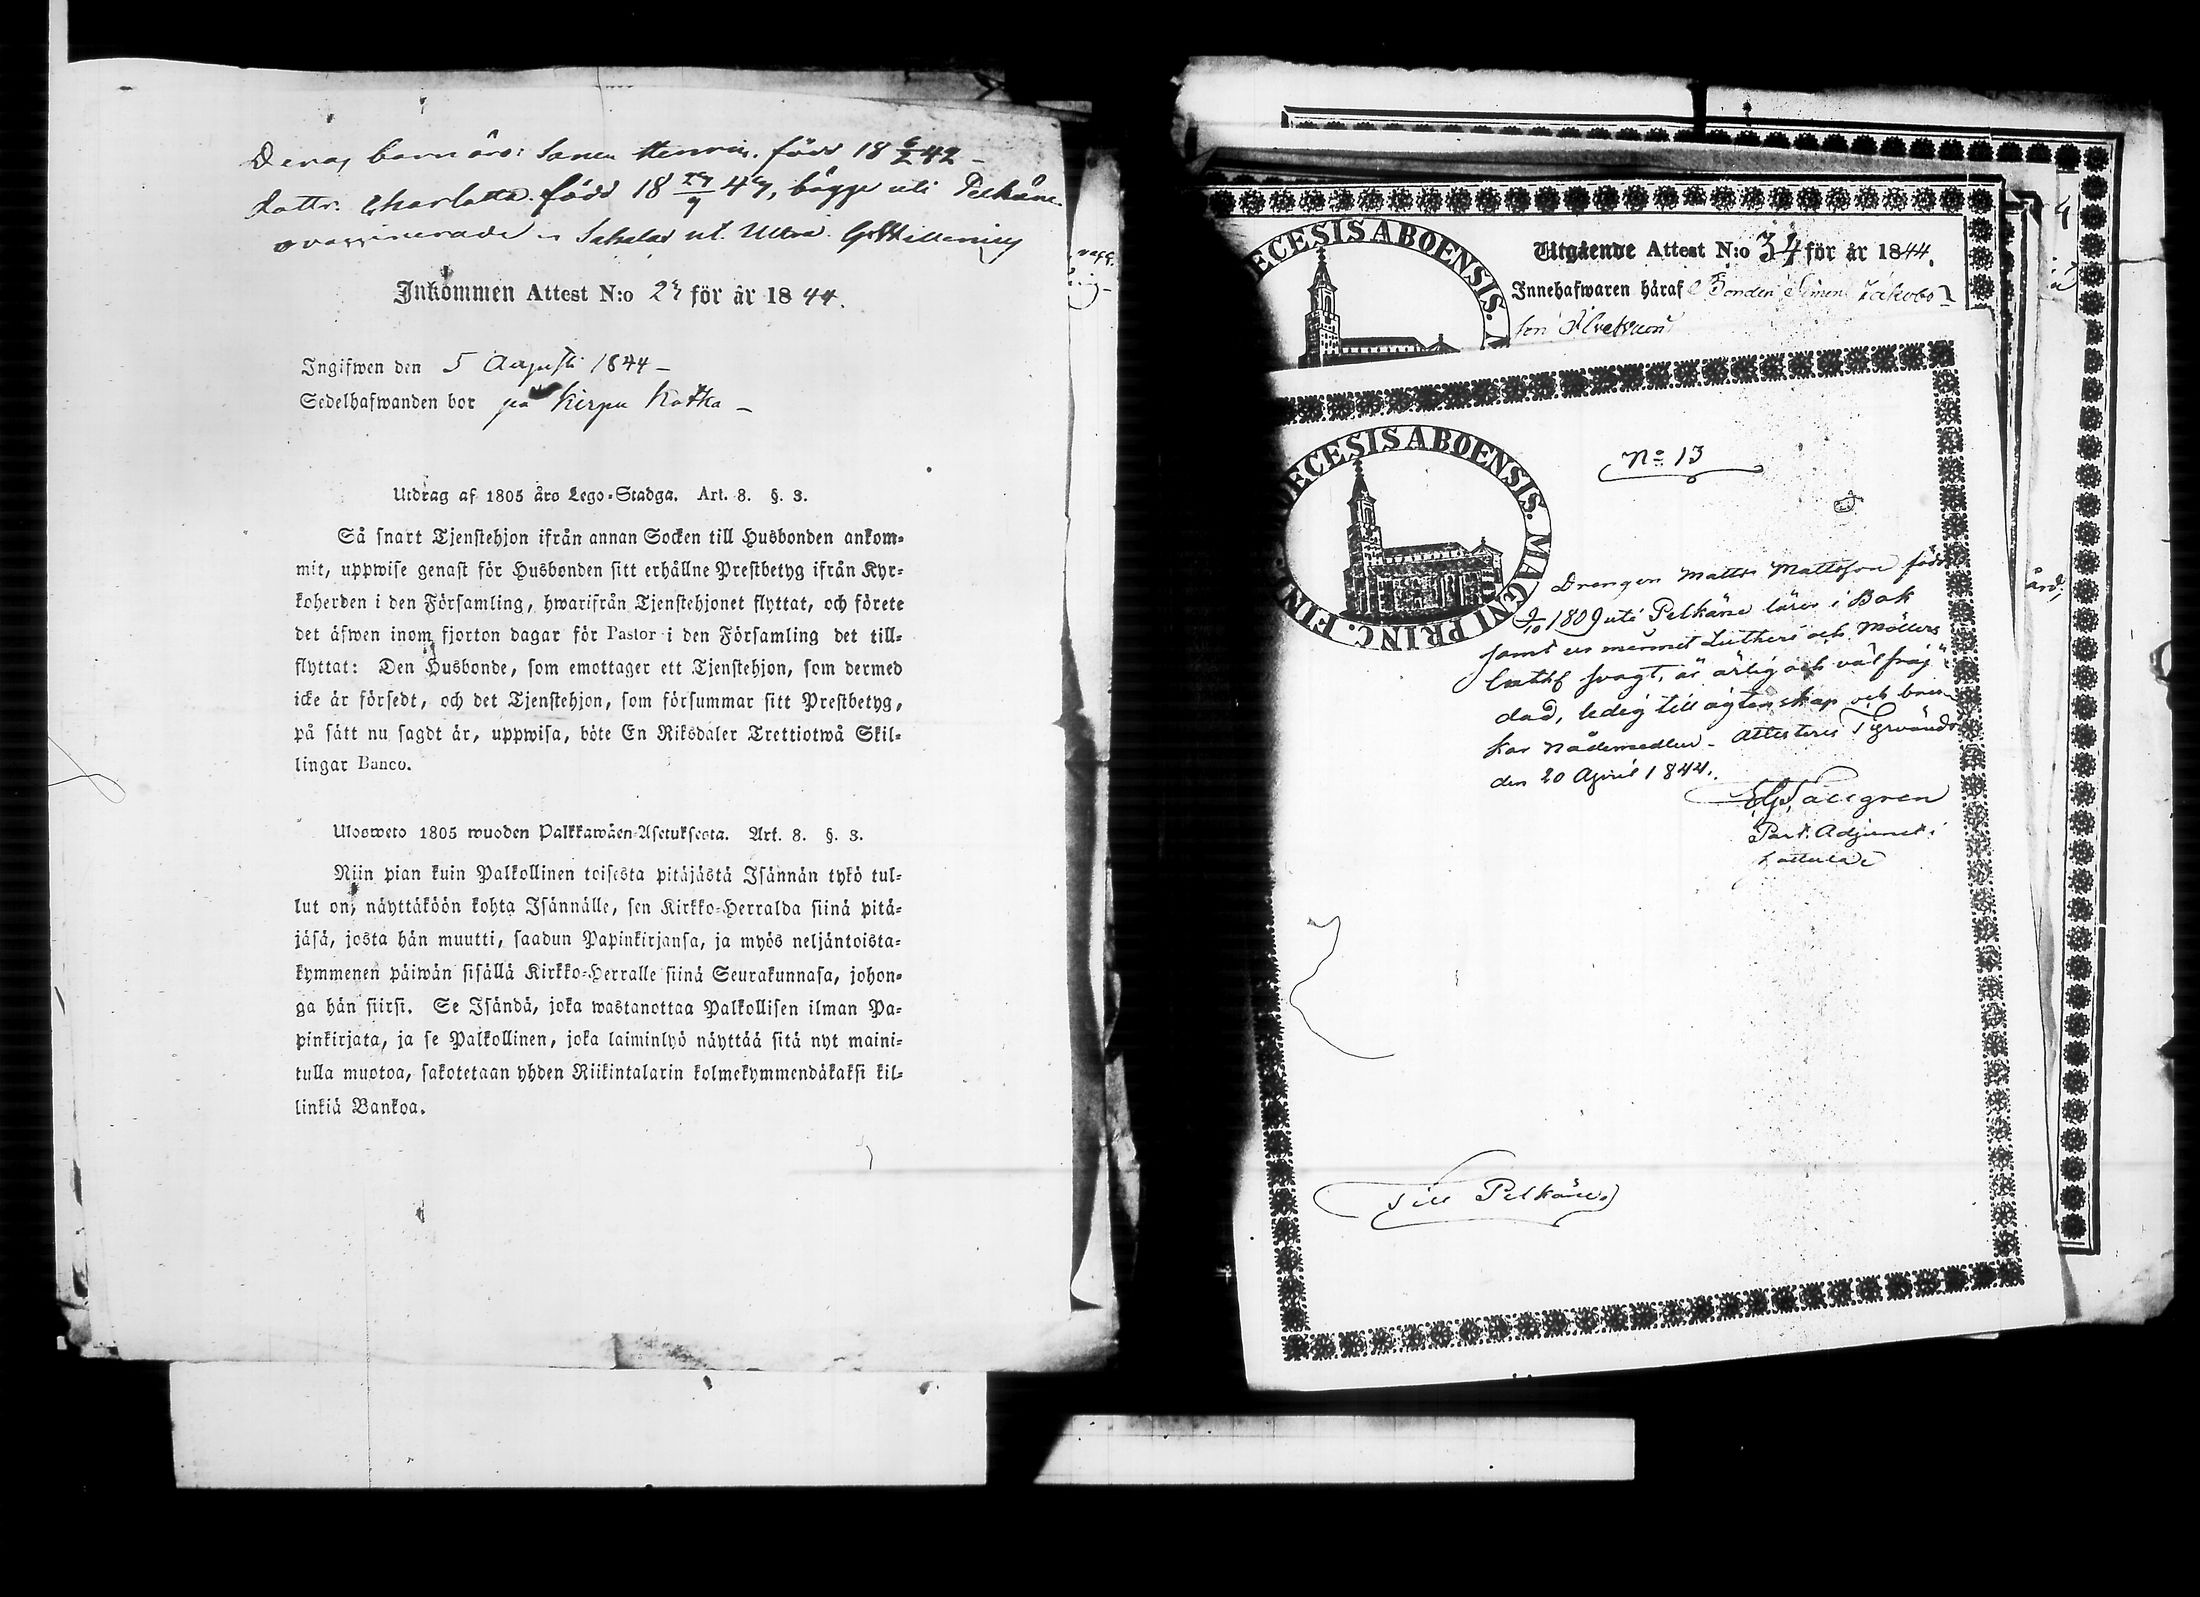 Deras barn äro: Sonen Henric, född 18 6/2 42 –
dottr. Charlotta född 18 27/9 4 , bägge uti Pelkäne
ovaccinerade
Inkommen Attest N:o 27 för år 1844.
Ingifwen den 5 Augusti 1844 –
Sedelhafwanden bor på Kirpu Kotka –
Utdrag af 1805 års Lego-Stadga. Art. 8. §. 3.
Så snart Tjenstehjon ifrån annan Socken till Husbonden ankom-
mit, uppwise genast för Husbonden sitt erhållne Prestbetyg ifrån Kyr-
koherden i den Församling, hwarifrån Tjenstehjonet flyttat, och förete
det äfwen inom fjorton dagar för Pastor i den Församling det till-
flyttat: Den Husbonde, som emottager ett Tjenstehjon, som dermed
icke är försedt, och det Tjenstehjon, som försummar sitt Prestbetyg,
på sätt nu sagdt är, uppwisa, böte En Riksdaler Trettiotwå Skil-
lingar Banco.
Ulosweto 1805 wuoden Palkkawäen-Asetuksesta. Art. 8. §. 3.
Niin pian kuin Palkollinen toisesta pitäjästä Isännän tykö tul-
lut on, näyttäköön kohta Isännälle, sen Kirkko-Herralda siinä pitä-
jäsä, josta hän muutti, saadun Papinkirjansa, ja myös neljäntoista-
kymmenen päiwän sisällä Kirkko-Herralle siinä Seurakunnasa, johon-
ga hän siirsi. Se Isändä, joka wastanottaa Palkollisen ilman Pa-
pinkirjata, ja se Palkollinen, joka laiminlyö näyttää sitä nyt maini-
tulla muotoa, sakotetaan yhden Riikintalarin kolmekymmendäkaksi kil-
linkiä Bankoa.
ECESIS ABOENSIS. M
Utgående Attest N:o 34 för år 1844.
Innehafwaren häraf Bonden Simon Jakobs-
son
DECESIS ABOENSIS. MAGNI PRINC. FIN
No 13
Drengen Matts Mattsson född
/10 1809 uti Pelkäne läser i Bok
samt ur minnet Lutheri och Möllers
svagt, är ärlig och välfräj-
dad, ledig till ägtenskap och bru-
kar Nådemedlen. Attesterar Tyrvändö
den 20 April 1844.
Past. Adjunct i
Till Pelkäne